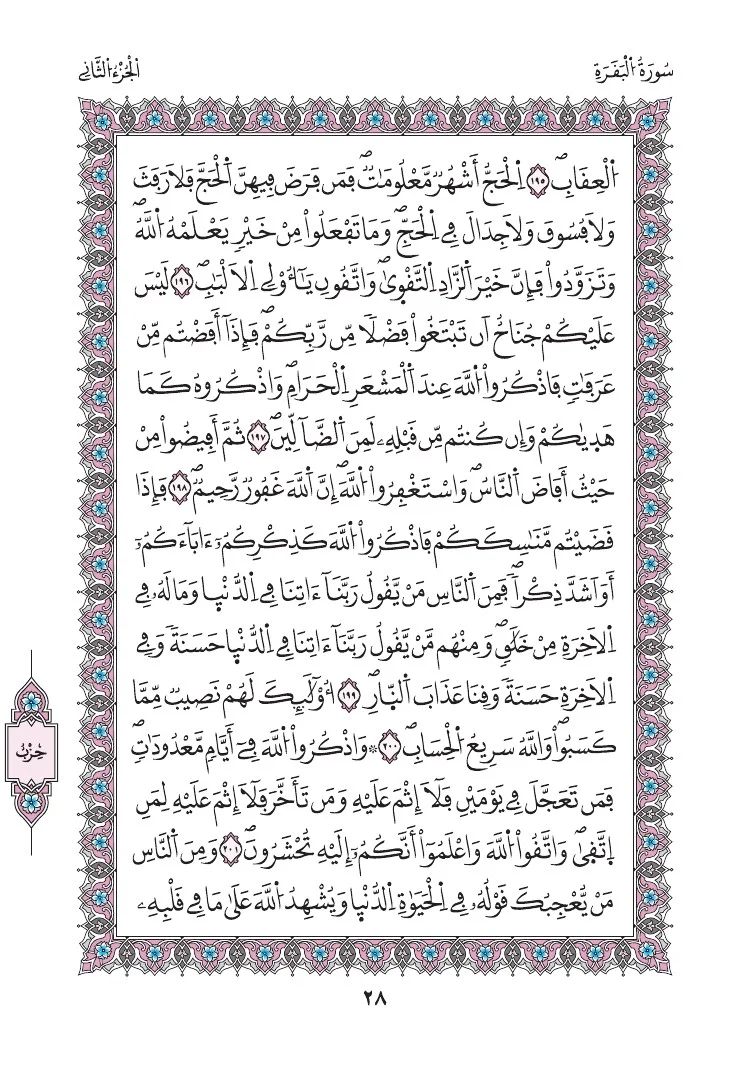 سُورَةُ الْبَقَرَةِ
الجُزْءُ الثَّانِي
اَ۬لْعِقَابِۖ ١٩٥ اِ۬لْحَجُّ أَشْهُرٞ مَّعْلُومَٰتٞۖ فَمَن فَرَضَ فِيهِنَّ اَ۬لْحَجَّ فَلَا رَفَثَ
وَلَا فُسُوقَ وَلَا جِدَالَ فِے اِ۬لْحَجِّۖ وَمَا تَفْعَلُواْ مِنْ خَيْرٖ يَعْلَمْهُ اُ۬للَّهُۖ
وَتَزَوَّدُواْ فَإِنَّ خَيْرَ اَ۬لزَّادِ اِ۬لتَّقْو۪يٰۖ وَاتَّقُونِ يَٰٓأُوْلِے اِ۬لَالْبَٰبِۖ ١٩٦ لَيْسَ
عَلَيْكُمْ جُنَاحٌ اَن تَبْتَغُواْ فَضْلاٗ مِّن رَّبِّكُمْۖ فَإِذَآ أَفَضْتُم مِّنْ
عَرَفَٰتٖ فَاذْكُرُواْ اُ۬للَّهَ عِندَ اَ۬لْمَشْعَرِ اِ۬لْحَرَامِۖ وَاذْكُرُوهُ كَمَا
هَد۪يٰكُمْ وَإِن كُنتُم مِّن قَبْلِهِۦ لَمِنَ اَ۬لضَّآلِّينَۖ ١٩٧ ثُمَّ أَفِيضُواْ مِنْ
حَيْثُ أَفَاضَ اَ۬لنَّاسُۖ وَاسْتَغْفِرُواْ اُ۬للَّهَۖ إِنَّ اَ۬للَّهَ غَفُورٞ رَّحِيمٞۖ ١٩٨ فَإِذَا
قَضَيْتُم مَّنَٰسِكَكُمْ فَاذْكُرُواْ اُ۬للَّهَ كَذِكْرِكُمُۥٓ ءَابَآءَكُمُۥٓ
أَوَ اَشَدَّ ذِكْراٗۖ فَمِنَ اَ۬لنَّاسِ مَنْ يَّقُولُ رَبَّنَآ ءَاتِنَا فِے اِ۬لدُّنْي۪ا وَمَا لَهُۥ فِے
اِ۬لَاخِرَةِ مِنْ خَلَٰقٖۖ وَمِنْهُم مَّنْ يَّقُولُ رَبَّنَآ ءَاتِنَا فِے اِ۬لدُّنْي۪ا حَسَنَةٗ وَفِے
اِ۬لَاخِرَةِ حَسَنَةٗ وَقِنَا عَذَابَ اَ۬لنّ۪ارِۖ ١٩٩ أُوْلَٰٓئِكَ لَهُمْ نَصِيبٞ مِّمَّا
كَسَبُواْۖ وَاللَّهُ سَرِيعُ اُ۬لْحِسَابِۖ ٢٠٠ ۞وَاذْكُرُواْ اُ۬للَّهَ فِےٓ أَيَّامٖ مَّعْدُودَٰتٖۖ
فَمَن تَعَجَّلَ فِے يَوْمَيْنِ فَلَآ إِثْمَ عَلَيْهِ وَمَن تَأَخَّرَ فَلَآ إِثْمَ عَلَيْهِ لِمَنِ
اِ۪تَّق۪يٰۖ وَاتَّقُواْ اُ۬للَّهَ وَاعْلَمُوٓاْ أَنَّكُمُۥٓ إِلَيْهِ تُحْشَرُونَۖ ٢٠١ وَمِنَ اَ۬لنَّاسِ
مَنْ يُّعْجِبُكَ قَوْلُهُۥ فِے اِ۬لْحَيَوٰةِ اِ۬لدُّنْي۪ا وَيُشْهِدُ اُ۬للَّهَ عَلَىٰ مَا فِے قَلْبِهِۦ
حِزْبٌ
٢٨